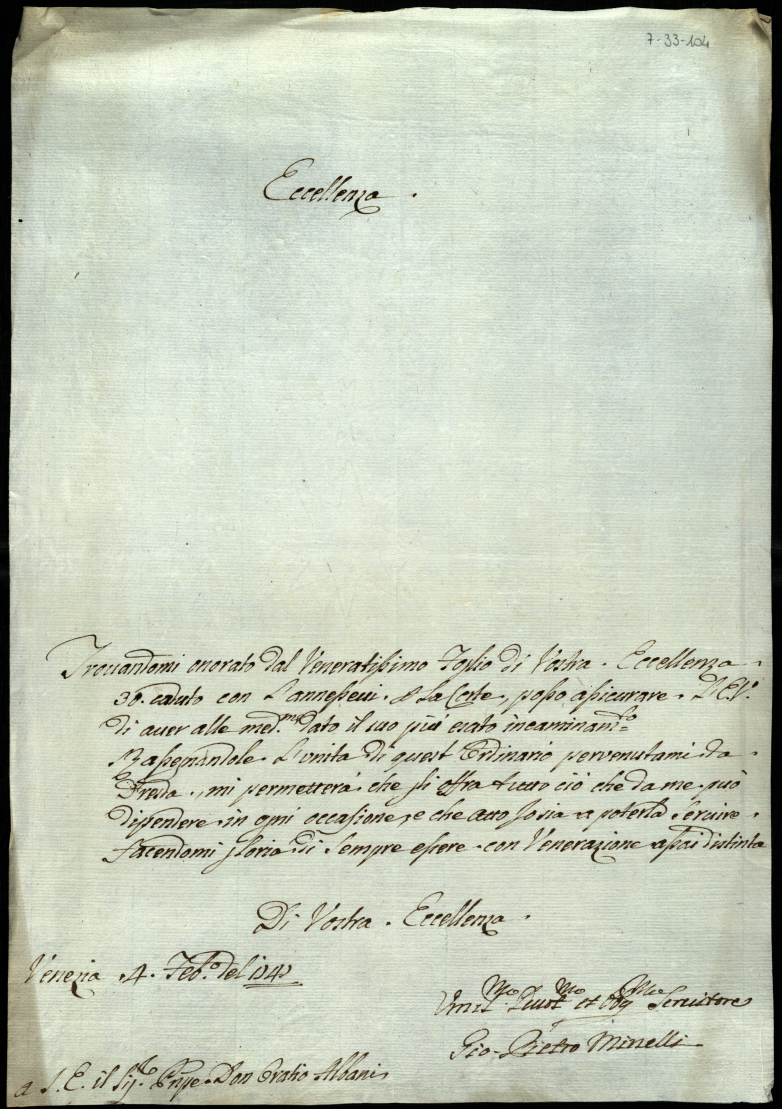 7-33-104
Eccellenza.
Trovandomi onorato dal Veneratissimo Foglio di Vostra Eccellenza
30. caduto con L'annessevi & La Corte, posso assicurare L'E.V.
di auer alle med.me dato il suo piú esato incaminam.to
Rasegnandole L'unita di quest'Ordinario pervenutami da
Dresda, mi permetterá che gli offra tutto ció che da me puó
dipendere in ogni occasione, e che atto sia a poterla Seruire
facendomi gloria di Sempre essere con Venerazione assai distinta
Di Vostra Eccellenza.
Venezia 4. Feb.o del
Umil.mo Deuot.mo et Obg.mo Seruitore
Gio. Pietro Minelli
a S. E. il Sig.r Pnpe Don Oratio Albani